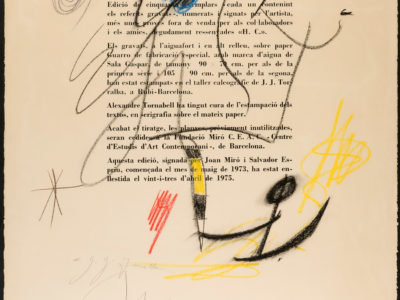 Edició de cinquanta exemplars cada un contenint
els referits gravats, numerats i signats per l'artista,
més unes proves fora de venda per als col·laboradors
i els amics, degudament ressenyades «H. C.».
Els gravats, a l'aiguafort i en alt relleu, sobre paper
Guarro de fabricació especial, amb marca d'aigua de
Sala Gaspar de tamany 90 × 70 cm. per als de la
primera sèrie i 105 × 90 cm. per als de la segona,
han estat estampats en el taller calcogràfic de J. J. Tor
ralba, a Rubí-Barcelona.
Alexandre Tornabell ha tingut cura de l'estampació dels
textos, en serigrafia sobre el mateix paper.
Acabat el tiratge, les planxes, prèviament inutilitzades,
seran cedides a la Fundació Miró C. E. A. C. - Centre
d'Estudis d'Art Contemporani -, de Barcelona.
Aquesta edició, signada per Joan Miró i Salvador Es-
priu, començada el mes de maig de 1973, ha estat en-
llestida el vint-i-tres d'abril de 1975.